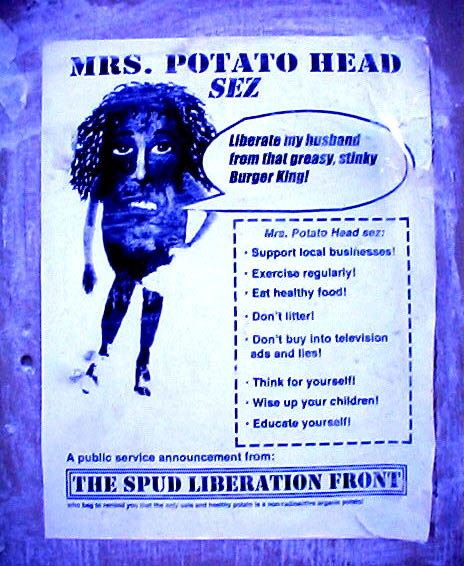 MRS. POTATO HEAD
SEZ
Liberate my husband
from that greasy, stinky
Burger King!
Mrs. Potato Head sez:
· Support local businesses!
· Exercise regularly!
· Eat healthy food!
· Don't litter!
· Don't buy into television
ads and lies!
· Think for yourself!
· Wise up your children!
· Educate yourself!
A public service announcement from:
THE SPUD LIBERATION FRONT
who beg to remind you that the only safe and healthy potato is a non-radioactive organic potato!